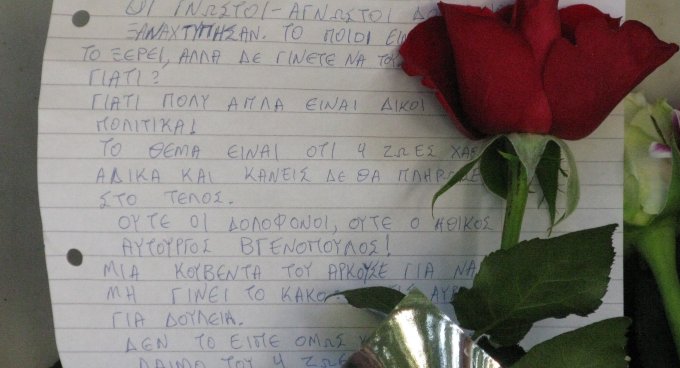 ΟΙ ΓΝΩΣΤΟΙ-ΑΓΝΩΣΤΟΙ
ΞΑΝΑΧΤΥΠΗΣΑΝ. ΤΟ ΠΟΙΟΙ
ΤΟ ΞΕΡΕΙ, ΑΛΛΑ ΔΕ ΓΙΝΕΤΕ ΝΑ
ΓΙΑΤΙ?
ΓΙΑΤΙ ΠΟΛΥ ΑΠΛΑ ΕΙΝΑΙ ΔΙΚΟΙ
ΠΟΛΙΤΙΚΑ!
ΤΟ ΘΕΜΑ ΕΙΝΑΙ ΟΤΙ 4 ΖΩΕΣ
ΑΔΙΚΑ ΚΑΙ ΚΑΝΕΙΣ ΔΕ ΘΑ
ΣΤΟ ΤΕΛΟΣ.
ΟΥΤΕ ΟΙ ΔΟΛΟΦΟΝΟΙ, ΟΥΤΕ Ο ΗΘΙΚΟΣ
ΑΥΤΟΥΡΓΟΣ ΒΓΕΝΟΠΟΥΛΟΣ!
ΜΙΑ ΚΟΥΒΕΝΤΑ ΤΟΥ ΑΡΚΟΥΣΕ ΓΙΑ ΝΑ
ΜΗ ΓΙΝΕΙ ΤΟ ΚΑΚΟ
ΓΙΑ ΔΟΥΛΕΙΑ.
ΔΕΝ ΤΟ ΕΙΠΕ ΟΜΩΣ
ΛΑΙΜΟ ΤΟΥ 4 ΖΩΕΣ